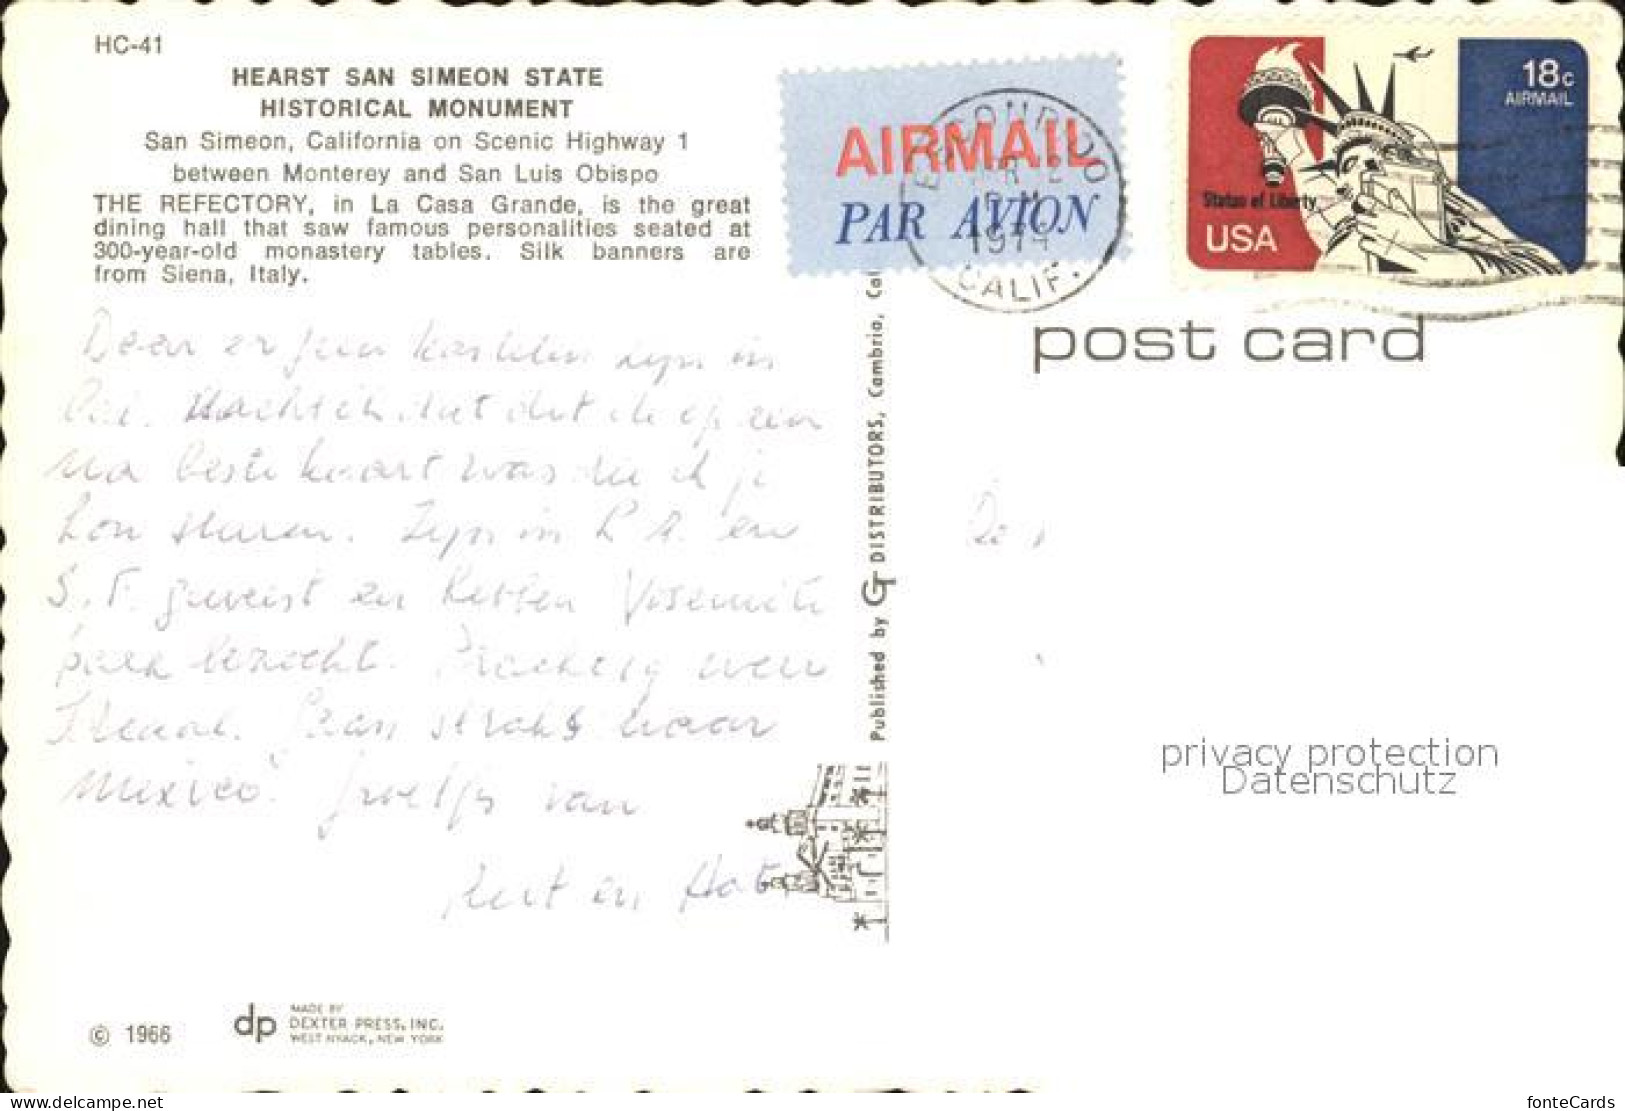 HC-41
HEARST SAN SIMEON STATE
HISTORICAL MONUMENT
San Simeon, California on Scenic Highway 1
between Monterey and San Luis Obispo
THE REFECTORY, in La Casa Grande, is the great
dining hall that saw famous personalities seated at
300-year-old monastery tables. Silk banners are
from Siena, Italy.
Daar er geen kastelen zijn in
dacht ik dat dit de op een
na beste kaart was die ik je
kon sturen. Zijn in L.A. en
S.F. geweest en hebben Yosemite
park bezocht. weer
. Gaan straks naar
Mexico. Groetjes van
en
© 1966
dp
MADE BY
DEXTER PRESS, INC.
WEST NYACK, NEW YORK
Published by GT DISTRIBUTORS, Cambria, Cal
AIRMAIL
PAR AVION
EL SEGUNDO
PM
CALIF.
18c
AIRMAIL
Statue of Liberty
USA
post card
privacy protection
Datenschutz
www.delcampe.net/id/item
fonteCards